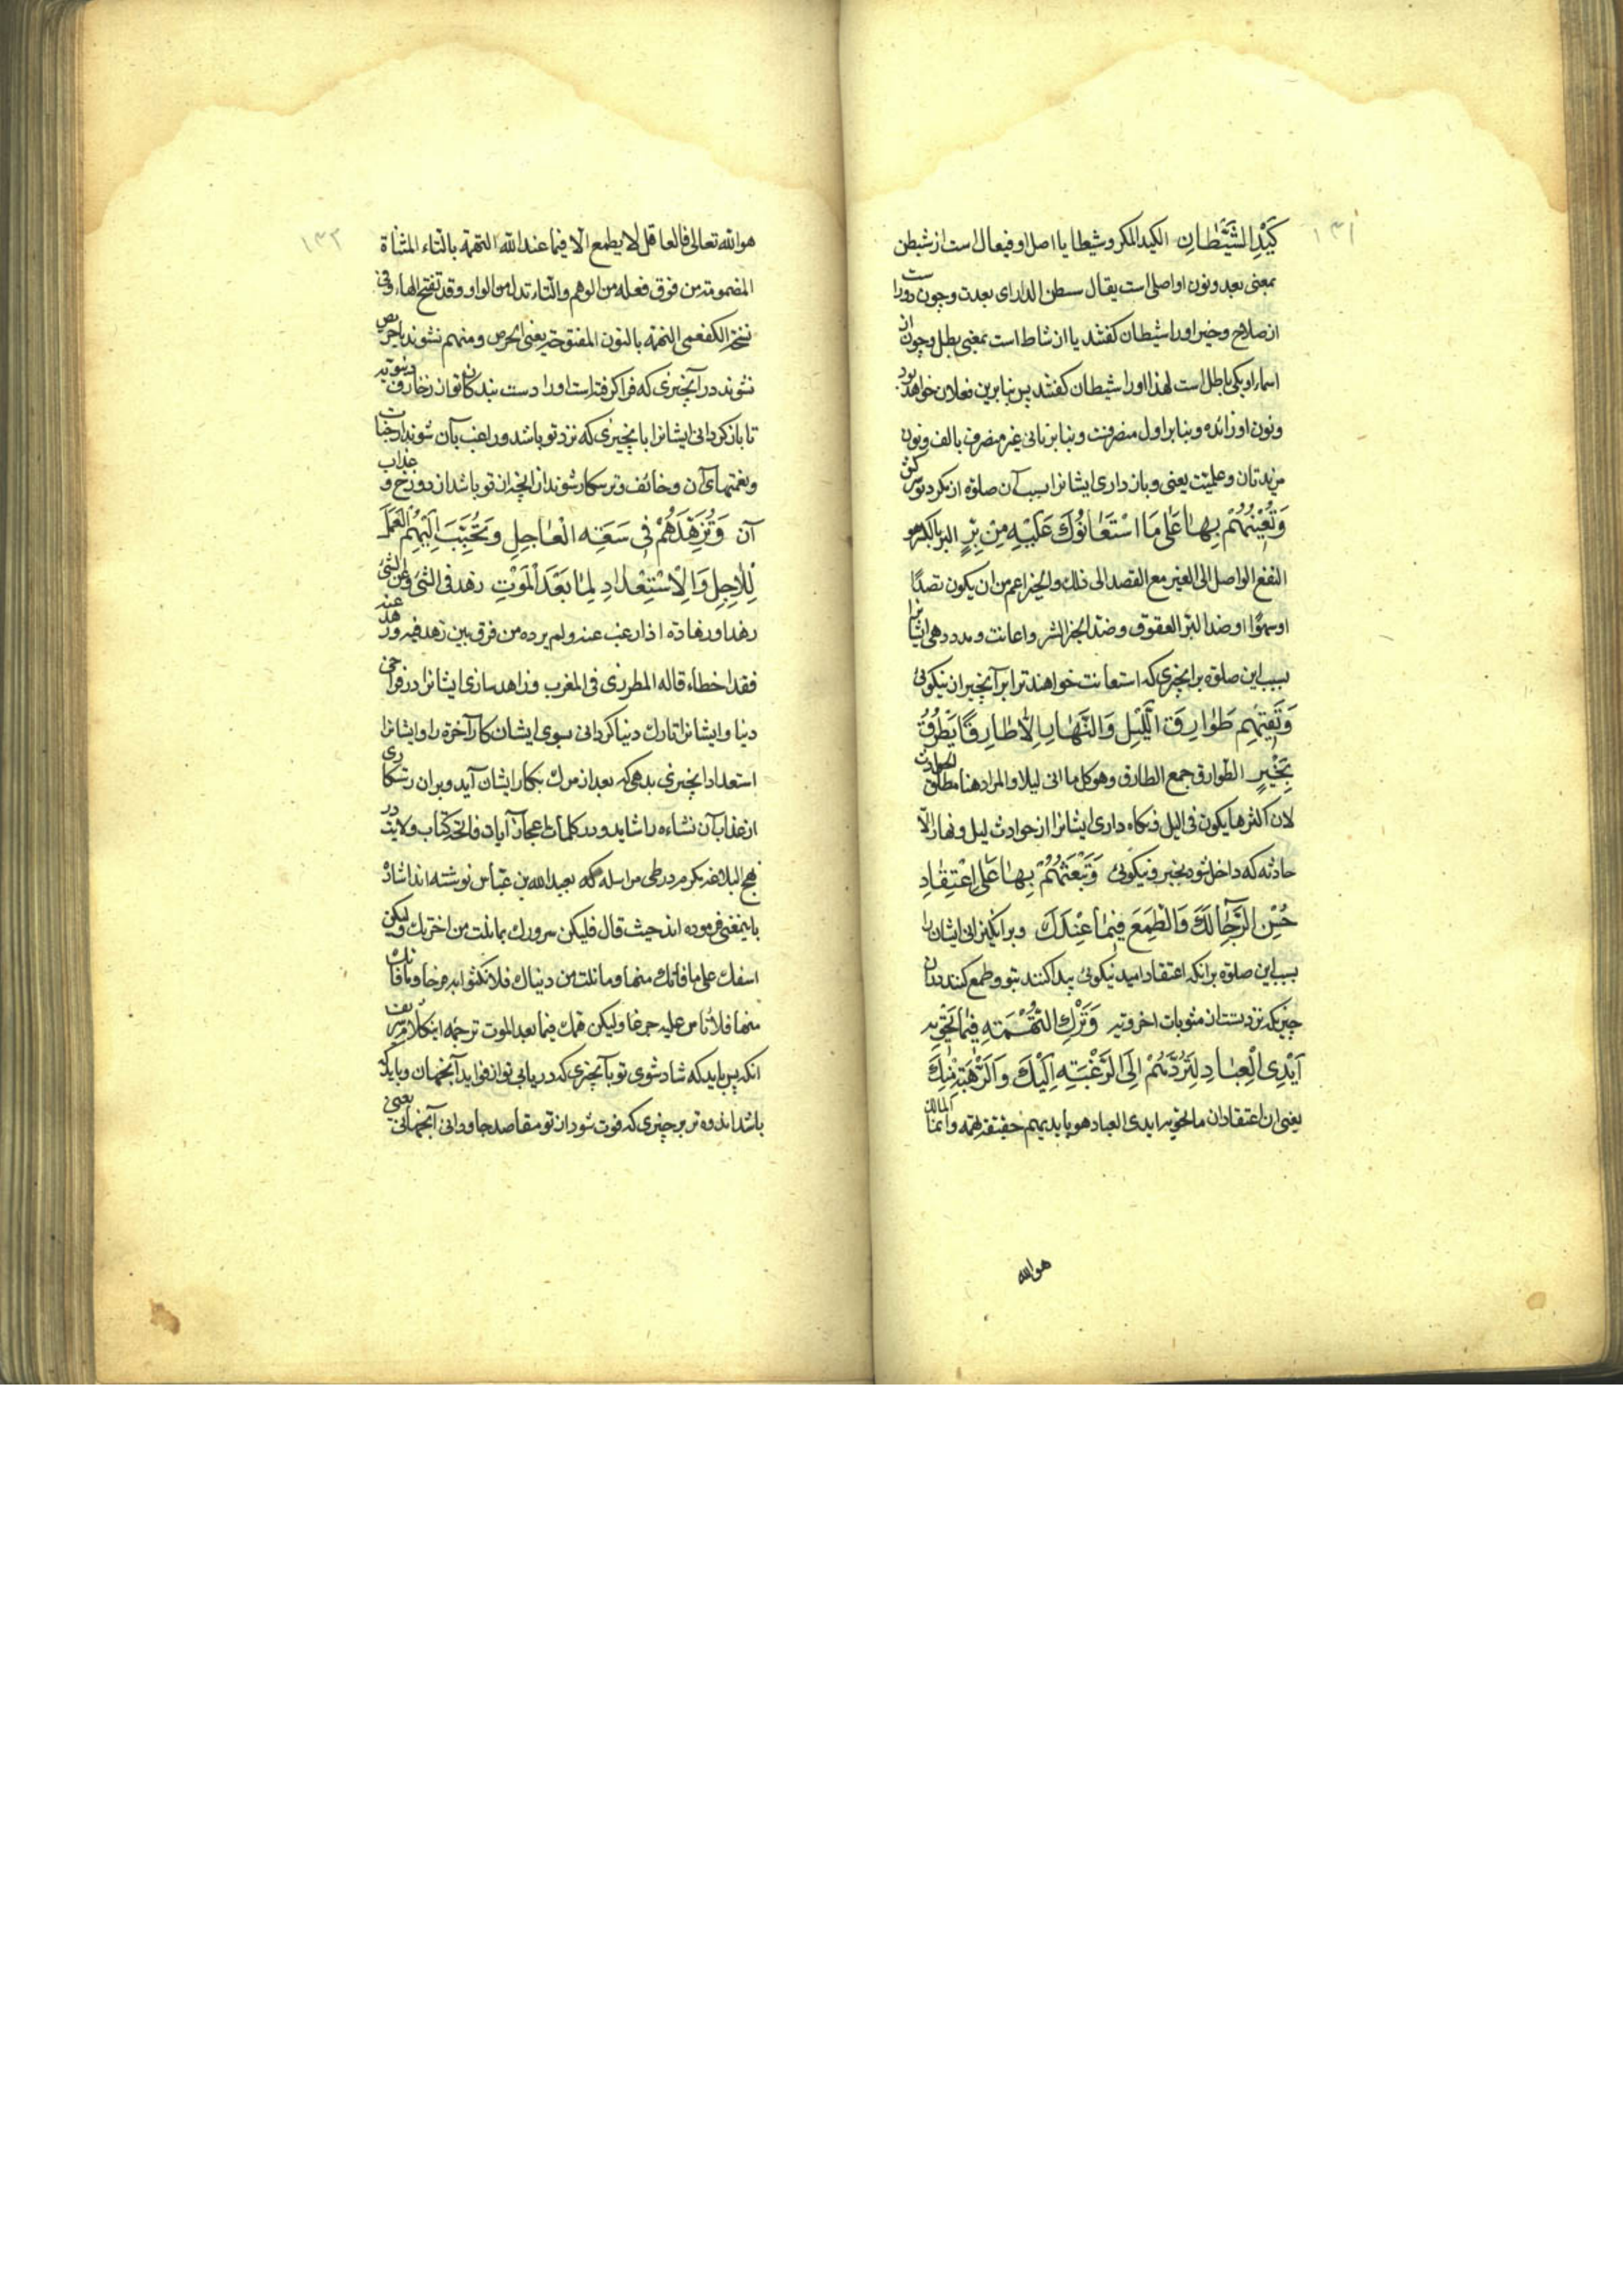 ۱۳۱
كَيْدِ الشَّيْطَانِ الكيد المكر وشيطا يا اصل او فيعال است از شيطن
بمعنى بعد ونون او اصلى است يقال سطن الدار اى بعدت وچون دورا ست
از صلاح وخير او را شيطان كفتند يا از شاط است بمعنى بطل وچون از
اسماء او يكى باطل است لهذا او را شيطان كفتند پس بنابرين فعلان خواهد بود
ونون او زائده وبنابر اول منصرفت وبنابر ثانى غير منصرف بالف ونون
مزيدتان وعلميت يعنى وباز دارى ايشانرا بسبب آن صلوة از مكر ديو سركش
وَتُعِيْنُهُمْ بِهَا عَلى مَا اسْتَعَانُوْكَ عَلَيْهِ مِنْ بِرٍّ البر بالكسر هو
النفع الواصل الى الغير مع القصد الى ذلك والخير اعم من ان يكون تصدًا
او سهوًا او ضد البر العقوق وضد الخير الشر واعانت ومدد دهى ايشا نرا
بسبب اين صلوة برانچيزى كه استعانت خواهند ترا بر آنچيز از نيكوئى
وَتَقِيْهِم طَوَارِقَ الَّليْلِ وَالنَّهَارِ اِلاّ طَارِقًا يَطْرُقُ
بِخَيْرٍ الطوارق جمع الطارق وهو كل ما اتى ليلا والمراد هنا مطلق الحوادث
لان اكثرها يكون فى اليل ونكاه دارى ايشانرا از حوادث ليل ونهار الّا
حادثه كه داخل شود بخير ونيكوئى وَتَبْعَثُهُمْ بِهَا عَلَى اعْتِقَادِ
حُسْنِ الرَّجَآءِ لَكَ وَالطَمَعَ فِيْمَا عِنْدَكَ وبر انكيزانى ايشان را
بسبب اين صلوة برانكه اعتقاد اميد نيكوئى پيدا كنند بتو وطمع كنند بدان
چيزيكه نزد تست از مثوبات اخرويه وَتَرْكِ التُّهْمَةِ فِيْمَا تَحْوِيْهِ
اَيْدِى الْعِبَادِ لِتَرُدَّهُمْ اِلَى الرَّغْبَةِ اِلَيْكَ وَالرَّهْبَةِ مِنْكَ
يعنى ان اعتقاد ان ما تحويه ايدى العباد هو بايديهم حقيقة تهمة وانما المالك
هو الله
۱۳۲
هو الله تعالى فالعاقل لا يطمع الّا فيما عند الله التهمة بالتاء المثناة
المضمومة من فوق فعله من الوهم والتاء بدل من الواو وقد تفتح الهاء وفى
نسخة الكفعمى النهمة بالنون المفتوحة يعنى الحرص ومنهم نشوند با حريص
نشوند در آنچيزى كه فرا كرفته است او را دست بندكان تو از زخارف دنيويه
تا باز كردانى ايشانرا بانچيزى كه نزد تو باشد وراغب بآن شوند از جنات
ونعمتهاى آن وخائف وترسكار شوند از انچه از تو باشد از دوزخ و عذاب
آن وَتُزَهِّدَهُمْ فِى سَعَةِ الْعَاجِلِ وَتُحَبِّبَ اِلَيْهِمُ الْعَمَلَ
لِلْاٰجِلِ وَالْاِسْتِعْدادِ لِمَا بَعْدَ الْمَوْتِ زهد فى الشئ وعن الشئ
زهدا وزهادة اذا رغب عنه ولم يرده من فرق بين زهد فيه وزهد عنه
فقد اخطاء قاله المطرزى فى المغرب وزاهد سازى ايشانرا در فراخى
دنيا وايشانرا تارك دنيا كردانى بسوى ايشان كار آخرة را وايشانرا
استعداد انچيزى بدهى كه بعد از مرك بكار ايشان آيد وبران رستكارى
از عذاب آن نشاءه را شايد ودر كلمات اعجاز آيات فاتحه كتاب ولايت در
نهج البلاغه مكرم در طى مراسله كه بعبدالله بن عبّاس نوشته اند اشاره
باينمعنى فرموده اند حيث قال فليكن سرورك بما نلت من اخرتك وليكن
اسفك على ما فاتك منها وما نلت من دنياك فلا تكثر به فرحا وما فاتك
منها فلا تاس عليه جزعا وليكن همك فيما بعد الموت ترجمه اينكلام شريف
انكه پس بايد كه شاد شوى تو بآنچيزى كه دريابى تو از فوايد آنجهان وبايد كه
باشد اندوه تو بر چيزى كه فوت شود از تو مقاصد جاودانى آنجهانى يعنى